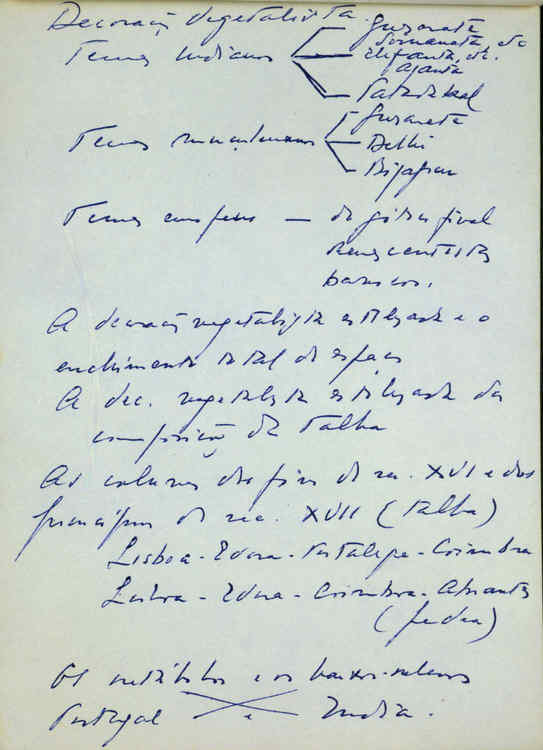 Decoração vegetalista
Temas indianos
Guzarate
Elefanta, etc.
Ajanta
Pattadakal
Temas muçulmanos
Guzarate
Delhi
Bijapur
Temas europeus — do gótico final
renascentistas
barrocos.
A decoração vegetalista estilizada e o
enchimento total do espaço
A dec. vegetalista estilizada da
composição da talha
As colunas dos fins do séc. XVI e dos
princípios do séc. XVII (talha)
Lisboa - Évora - Portalegre - Coimbra
Lisboa - Évora - Coimbra - Abrantes
(pedra)
Os retábulos e os baixos-relevos
Portugal e India.